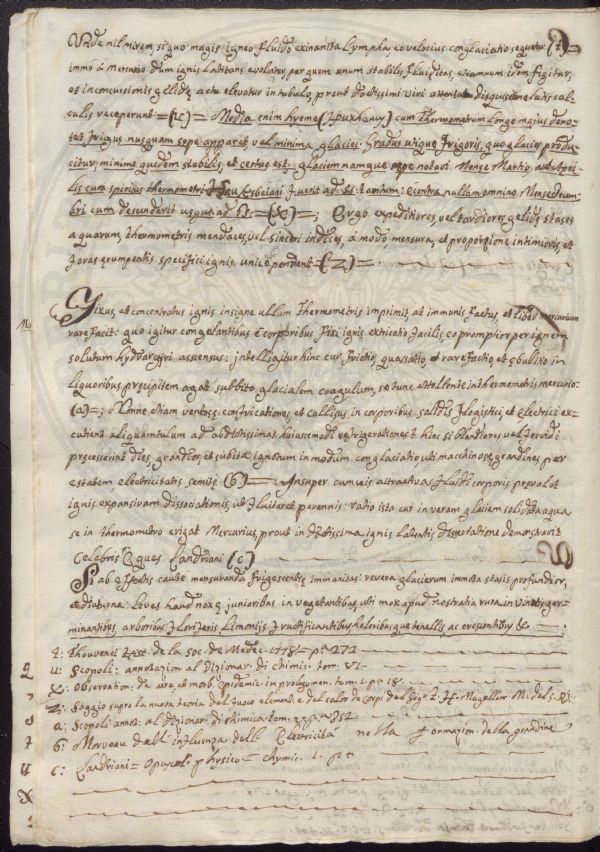 Unde nil mirum, si quo magis igneo fluido exinanita Lympha, eo velocius conglaciatio sequetur: (t)=
immò à mercurio dum ignis latitans evolatur, per quem unum stabilis fluiditas, etiamnum idem figitur,
et in concussionis gelidę actu elevatur in tubulo, prout doctissimi viri attenta disquisitione latis cal-
culis receperunt =(u)= Media enim hyeme (Huxhany) cum Thermometrum longe majus deno-
tet frigus nusquam sepe apparet vel minima glacies. Gradus utique frigoris, quo glacies produ-
citur, minime quidem stabilis, et certus est: glaciem namque sepe notavi Mense Martij, aut Apri-
lis cum spiritus thermometri Hauksbejani fuerit ad 45 tantum: e contra nullam omnino Mense Decem-
bri cum descenderit usque ad 65 =(x)=; Ergo expeditiores, vel tardiores gelidę stases
aquarum, thermometris mendaces, vel sinceri indices, à modo, mensura, et proportione intimioris, et
foras erumpentis specifici ignis unice pendent =(z)=
Fixus, et concentratus ignis insigne ullum Thermometris imprimit, at immunis factus, et liber mercurium
rarefacit: quo igitur congelantibus è corporibus fixi ignis extricatio facilis, eo promptior per ignem
solutum hydrargyri ascensus: intelligitur hinc cur frictio, quassatio, et rarefactio, et ebullitio in
liquoribus precipitem agat subbito glacialem coagulum, se tunc attollente in thermometris mercurio-
(a)=; Nonne etiam ventosę confricationes, et collisus in corporibus solidis flogistici, et electrici ex-
cutient aliquantulum ad obstitissimas huiuscemodi refrigerationes? hinc si blandiores, vel fervidi
precesserint dies, grandior, et subita ignotum in modum conglaciatio, uti macchinosę grandines per
estatem electricitatis semitę (b)= Insuper cum vis attractiva fluidi corporis prevalet
ignis expansivam dissociationis, ut fluitaret perennis: ratio ista cur in veram glaciem solidata aqua
se in thermometro erigat Mercurius, prout in doctissima ignis latentis dissertatione demonstravit
celebris Eques Landriani (c)
Si ab effectis caute mensuranda frigescentię immanitas: revera glacierum immota stasis profundior,
et diuturna. Leves haud noxę junioribus in vegetantibus, uti mox apud nostratia rura in vinetis ger-
minantibus arboribus floriferis Limonijs fructificantibus holeribusque tenellis, ac crescentibus &
t: Thouvenel hist. de la Soc. de Medec. 1778 - pa 272
u: Scopoli: annotazioni al Dizionar: di chimic: tom: VI
x: Observation: de aere, et morb: epidemic: in prolegomen. tom. 1. pa 18
z: Saggio supra la nuova teoria del fuoco element: e del calor de corpi del Sigr I. H. Magellan M: del S. R:
a: Scopoli annot: al dizionar: di chimica tom. 5 pa 252
b: Morveau dell' influenza dell' Elettricità nella formazion: della grandine
c: Landriani = Opuscol: physico = chymic. 1. pa